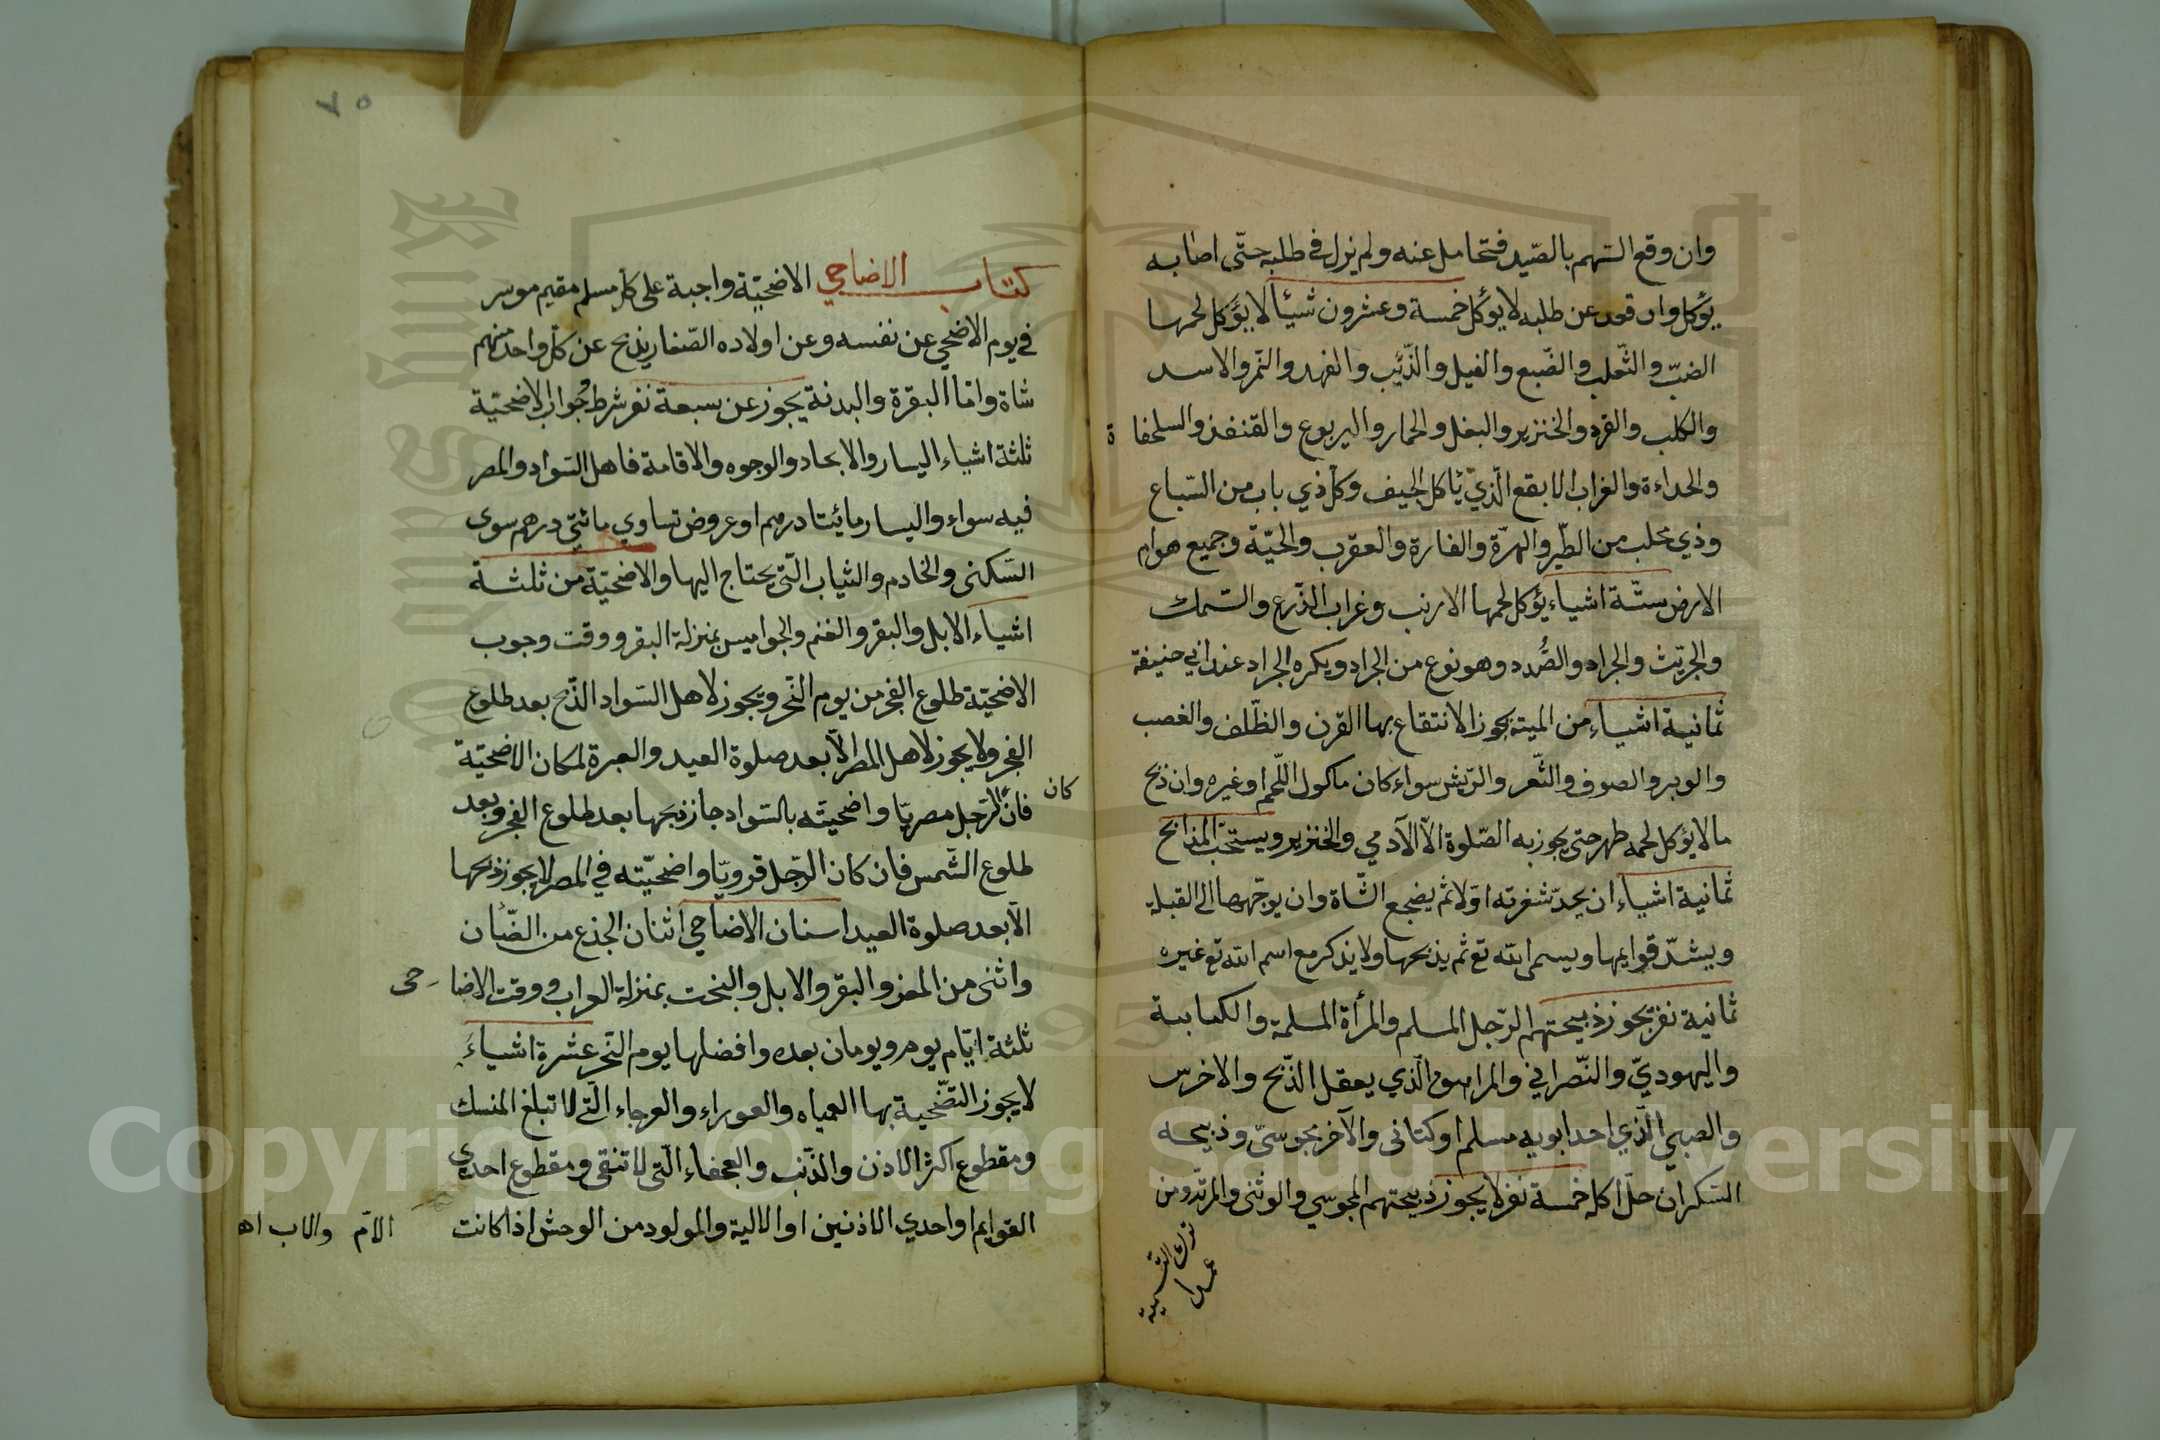 وان وقع السّهم بالصّيد فتحامل عنه ولم يزل في طلبه حتّى اصابه
يؤكل وان قعد عن طلبه لا يؤكل خمسة وعشرون شيئا لا يؤكل لحمها
الضبّ والثّعلب والضّبع والفيل والذّئب والفهد والنّمر والاسد
والكلب والقرد والخنزير والبغل والحمار واليربوع والقنفذ والسلحفاة
والحداءة والغراب الابقع الّذي يأكل الجيف وكلّ ذي ناب من السّباع
وذي مخلب من الطّير والهرّة والفارة والعقرب والحيّة وجميع هوام
الارض ستّة اشياء يؤكل لحمها الارنب وغراب الزّرع والسّمك
والجرّيث والجراد والصُّدد وهو نوع من الجراد ويكره الجراد عند ابي حنيفة
ثمانية اشياء من الميتة يجوز الانتقاع بها القرن والظّلف والغصب
والوبر والصوف والشّعر والرّيش سواء كان ماكول اللّحم او غيره وان ذبح
مالا يؤكل لحمه طهر حتى يجوز به الصّلوة الّا الآدمي والخنزير ويستحبّ المذابح
ثمانية اشياء ان يحدّ شفرته اوّلا ثم يضجع الشّاة وان يوجّهها الى القبلة
ويشدّ قوايمها ويسمى الله تع ثم يذبحها ولا يذكر مع اسم الله تع غيره
ثمانية نفر يجوز ذبيحتهم الرّجل المسلم والمرأة المسلمة والكتابية
واليهوديّ والنّصراني والمراهق الّذي يعقل الذّبح والاخرس
والصبي الّذي احد ابويه مسلم او كتابى والآخر مجوسىّ وذبيحه
السّكران حلّ اكله خمسة نفر لا يجوز ذبيحتهم المجوسي والوثنى والمرتدّ ومن
ترك التّسمية
عمدا
٧٥
كتاب الاضاحي الاضحيّة واجبة على كلّ مسلم مقيم موسر
في يوم الاضحي عن نفسه وعن اولاده الصّغار يذبح عن كلّ واحد منهم
شاة وامّا البقرة والبدنة يجوز عن سبعة نفر شرط جُواب الاضحيّة
ثلثة اشياء اليسار والابحاد والوجوه والاقامة فاهل السّواد والمصر
فيه سواء واليسار مائتا درهم او عروض تساوي مائتي درهم سوى
السّكنى والخادم والثياب الّتى يحتاج اليها والاضحيّة من ثلثة
اشياء الابل والبقر والغنم والجواميس بمنزلة البقر ووقت وجوب
الاضحيّة طلوع الفجر من يوم النّحر ويجوز لاهل السّواد الذّبح بعد طلوع
الفجر ولا يجوز لاهل المصر الّا بعد صلوة العيد والعبرة لمكان الاضحيّة
كان
فانّ الرّجل مصريّا واضحيّته بالسّواد جاز ذبحها بعد طلوع الفجر وبعد
طلوع الشّمس فان كان الرّجل قرويّا واضحيّته في المصر لا يجوز ذبحها
الّا بعد صلوة العيد اسنان الاضاحي اثنان الجذع من الضّأن
واثنى من المعز والبقر والابل والبخت بمنزلة العراب ووقت الاضاحى
ثلثة ايّام يوم ويومان بعده وافضلها يوم النّحر عشرة اشياءَ
لا يجوز التّضحية بها العمياه والعوراء والعرجاء الّتى لا تبلغ المنسك
ومقطوع اكثر الاذن والذّنب والعجفاء الّتى لا تنقى ومقطوع احدى
القوايم او احدي الاذنين او الالية والمولود من الوحش اذا كانت
الامّ والاب اه